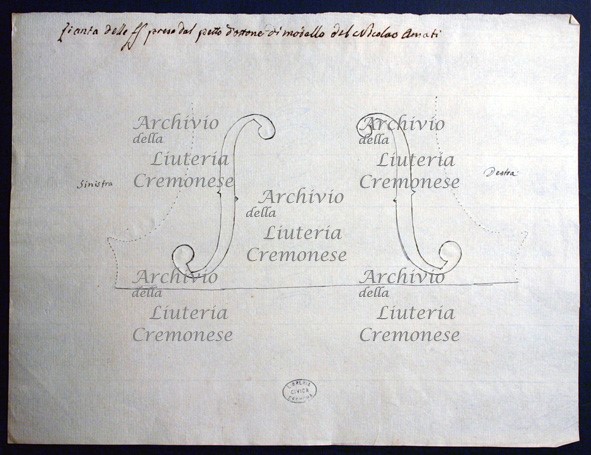 Pianta delle ff prese dal petto d'ottone di modello del Nicolao Amati
Archivio
della
Liuteria
Cremonese
Archivio
della
Liuteria
Cremonese
Sinistra
Destra
Archivio
della
Liuteria
Cremonese
Archivio
della
Liuteria
Cremonese
Archivio
della
Liuteria
Cremonese
CIVICO